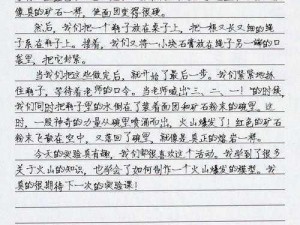 像真的矿石一样，使面团变得很硬。
然后，我们把一个瓶子放在桌子上，把一根又长又细的绳
子系在瓶子上。接着，我们又将一小块石膏放在绳子另一端的口
袋里，把它封紧。
当我们把这些做完后，就开始了最后一步。我们紧紧地抓
住瓶子，等待着老师的口令。当老师喊出“三、二、一！”的时候，
我们同时把瓶子里的水倒在了装着面团和矿石粉末的碗里。这
时，一股神奇的力量从碗里喷涌而出，火山爆发了！红色的矿石
粉末飞散在空中，又落回了碗里，就像是真正的熔岩一样。
今天的实验真有趣，我们都很喜欢这个活动。我学到了很多
关于火山的知识，也学会了如何制作一个火山爆发的模型。我
真的很期待下一次的实验课！